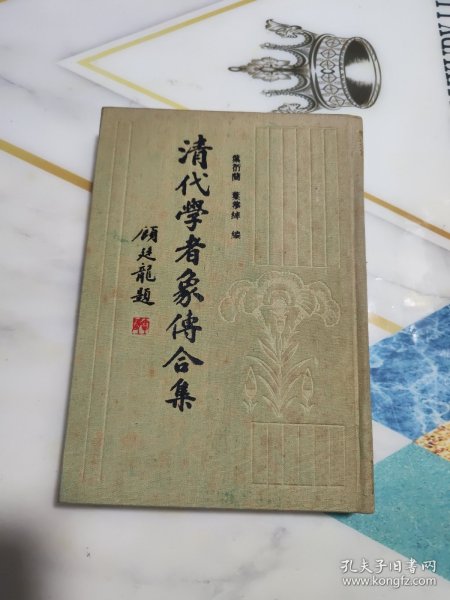 葉衍蘭 葉恭綽 編
清代學者象傳合集
顧廷龍題
孔夫子旧书网
www.kongfz.com